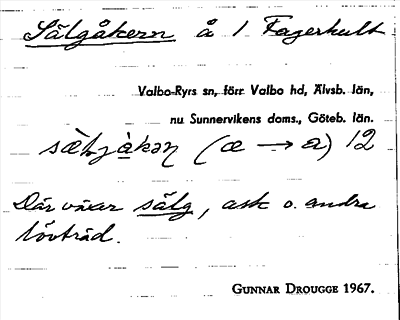 Sälgåkern å 1 Fagerhult
Valbo-Ryrs sn, förr Valbo hd, Älvsb. län,
nu Sunnervikens doms., Göteb. län.
(æ → a) 12
Där växer sälg, ask o. andra
lövträd.
GUNNAR DROUGGE 1967.